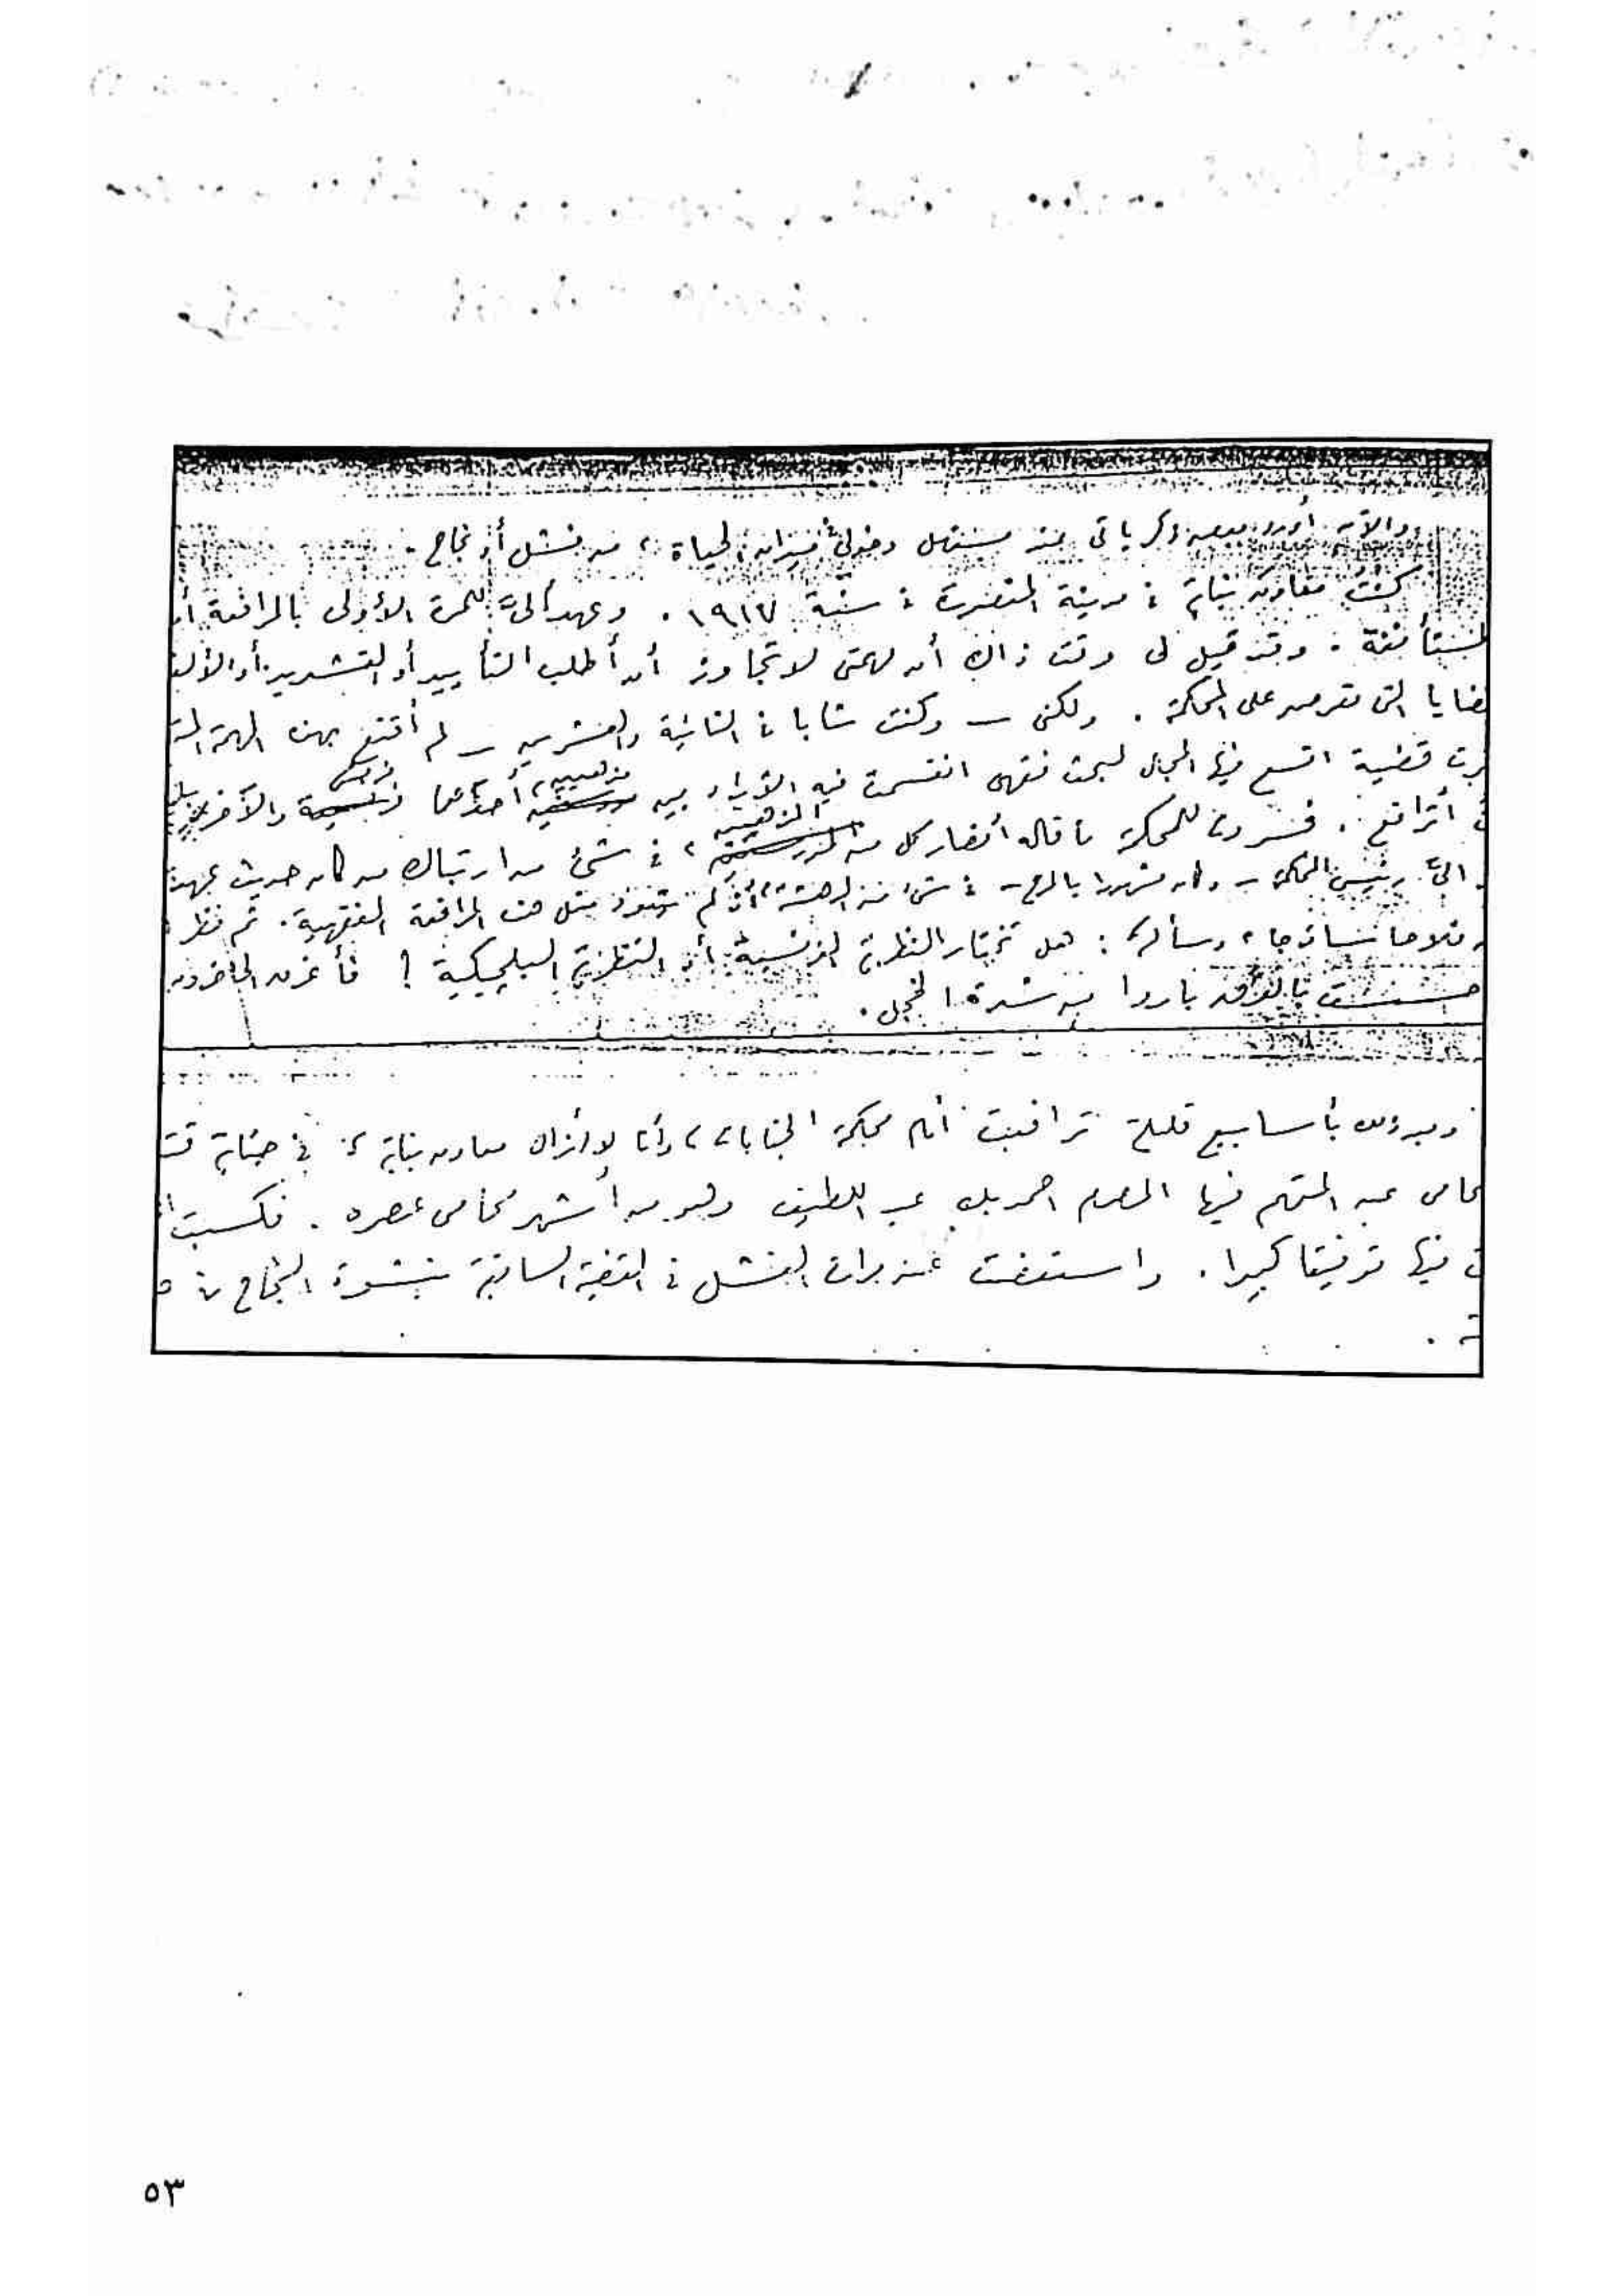 والآن أورد بعض ذكرياتى عند مستهل دخولى ميدان الحياة، من فشل أو نجاح.
كنت معاون نيابة فى مدينة المنصورة فى سنة ١٩١٧. وعهد إلىّ للمرة الأولى بالمرافعة أ
لمستأنفة. وقد قيل لى وقت ذاك أن مهمتى لا تجاوز أن أطلب التأييد أو التشديد أو الإلغا
لقضايا التى تعرض على المحكمة. ولكنى - وكنت شابا فى الثانية والعشرين - لم أقتنع بهذه المهمة
قضية اتسع فيها المجال لبحث فقهى انقسمت فيه الآراء بين مذهبين، أحدهما فرنسى والآخر
أترافع. فسردت للمحكمة ما قاله أنصار كل من المذهبين، فى شئ من ارتباك من كان حديث عهد
إلىّ رئيس المحكمة - وكان مشهورا بالمرح - فى شئ من الدهشة، إذ لم يتعود مثل هذه المرافعة الفقهية. ثم نظر
وسألنى: هل تختار النظرية الفرنسية أو النظرية البلجيكية؟ فأغرق الحاضرون
بالعرق باردا من شدة الخجل.
وبعد ذلك بأسابيع قليلة ترافعت أمام محكمة الجنايات، وأنا لا أزال معاون نيابة، فى جناية
محامى عن المتهم فيها المرحوم احمد بك عبد اللطيف وهو من أشهر محامى عصره. فكسبت
فيها توفيقا كبيرا. واستعضت عن مرارة الفشل فى القضية السابقة بنشوة النجاح فى
٥٣